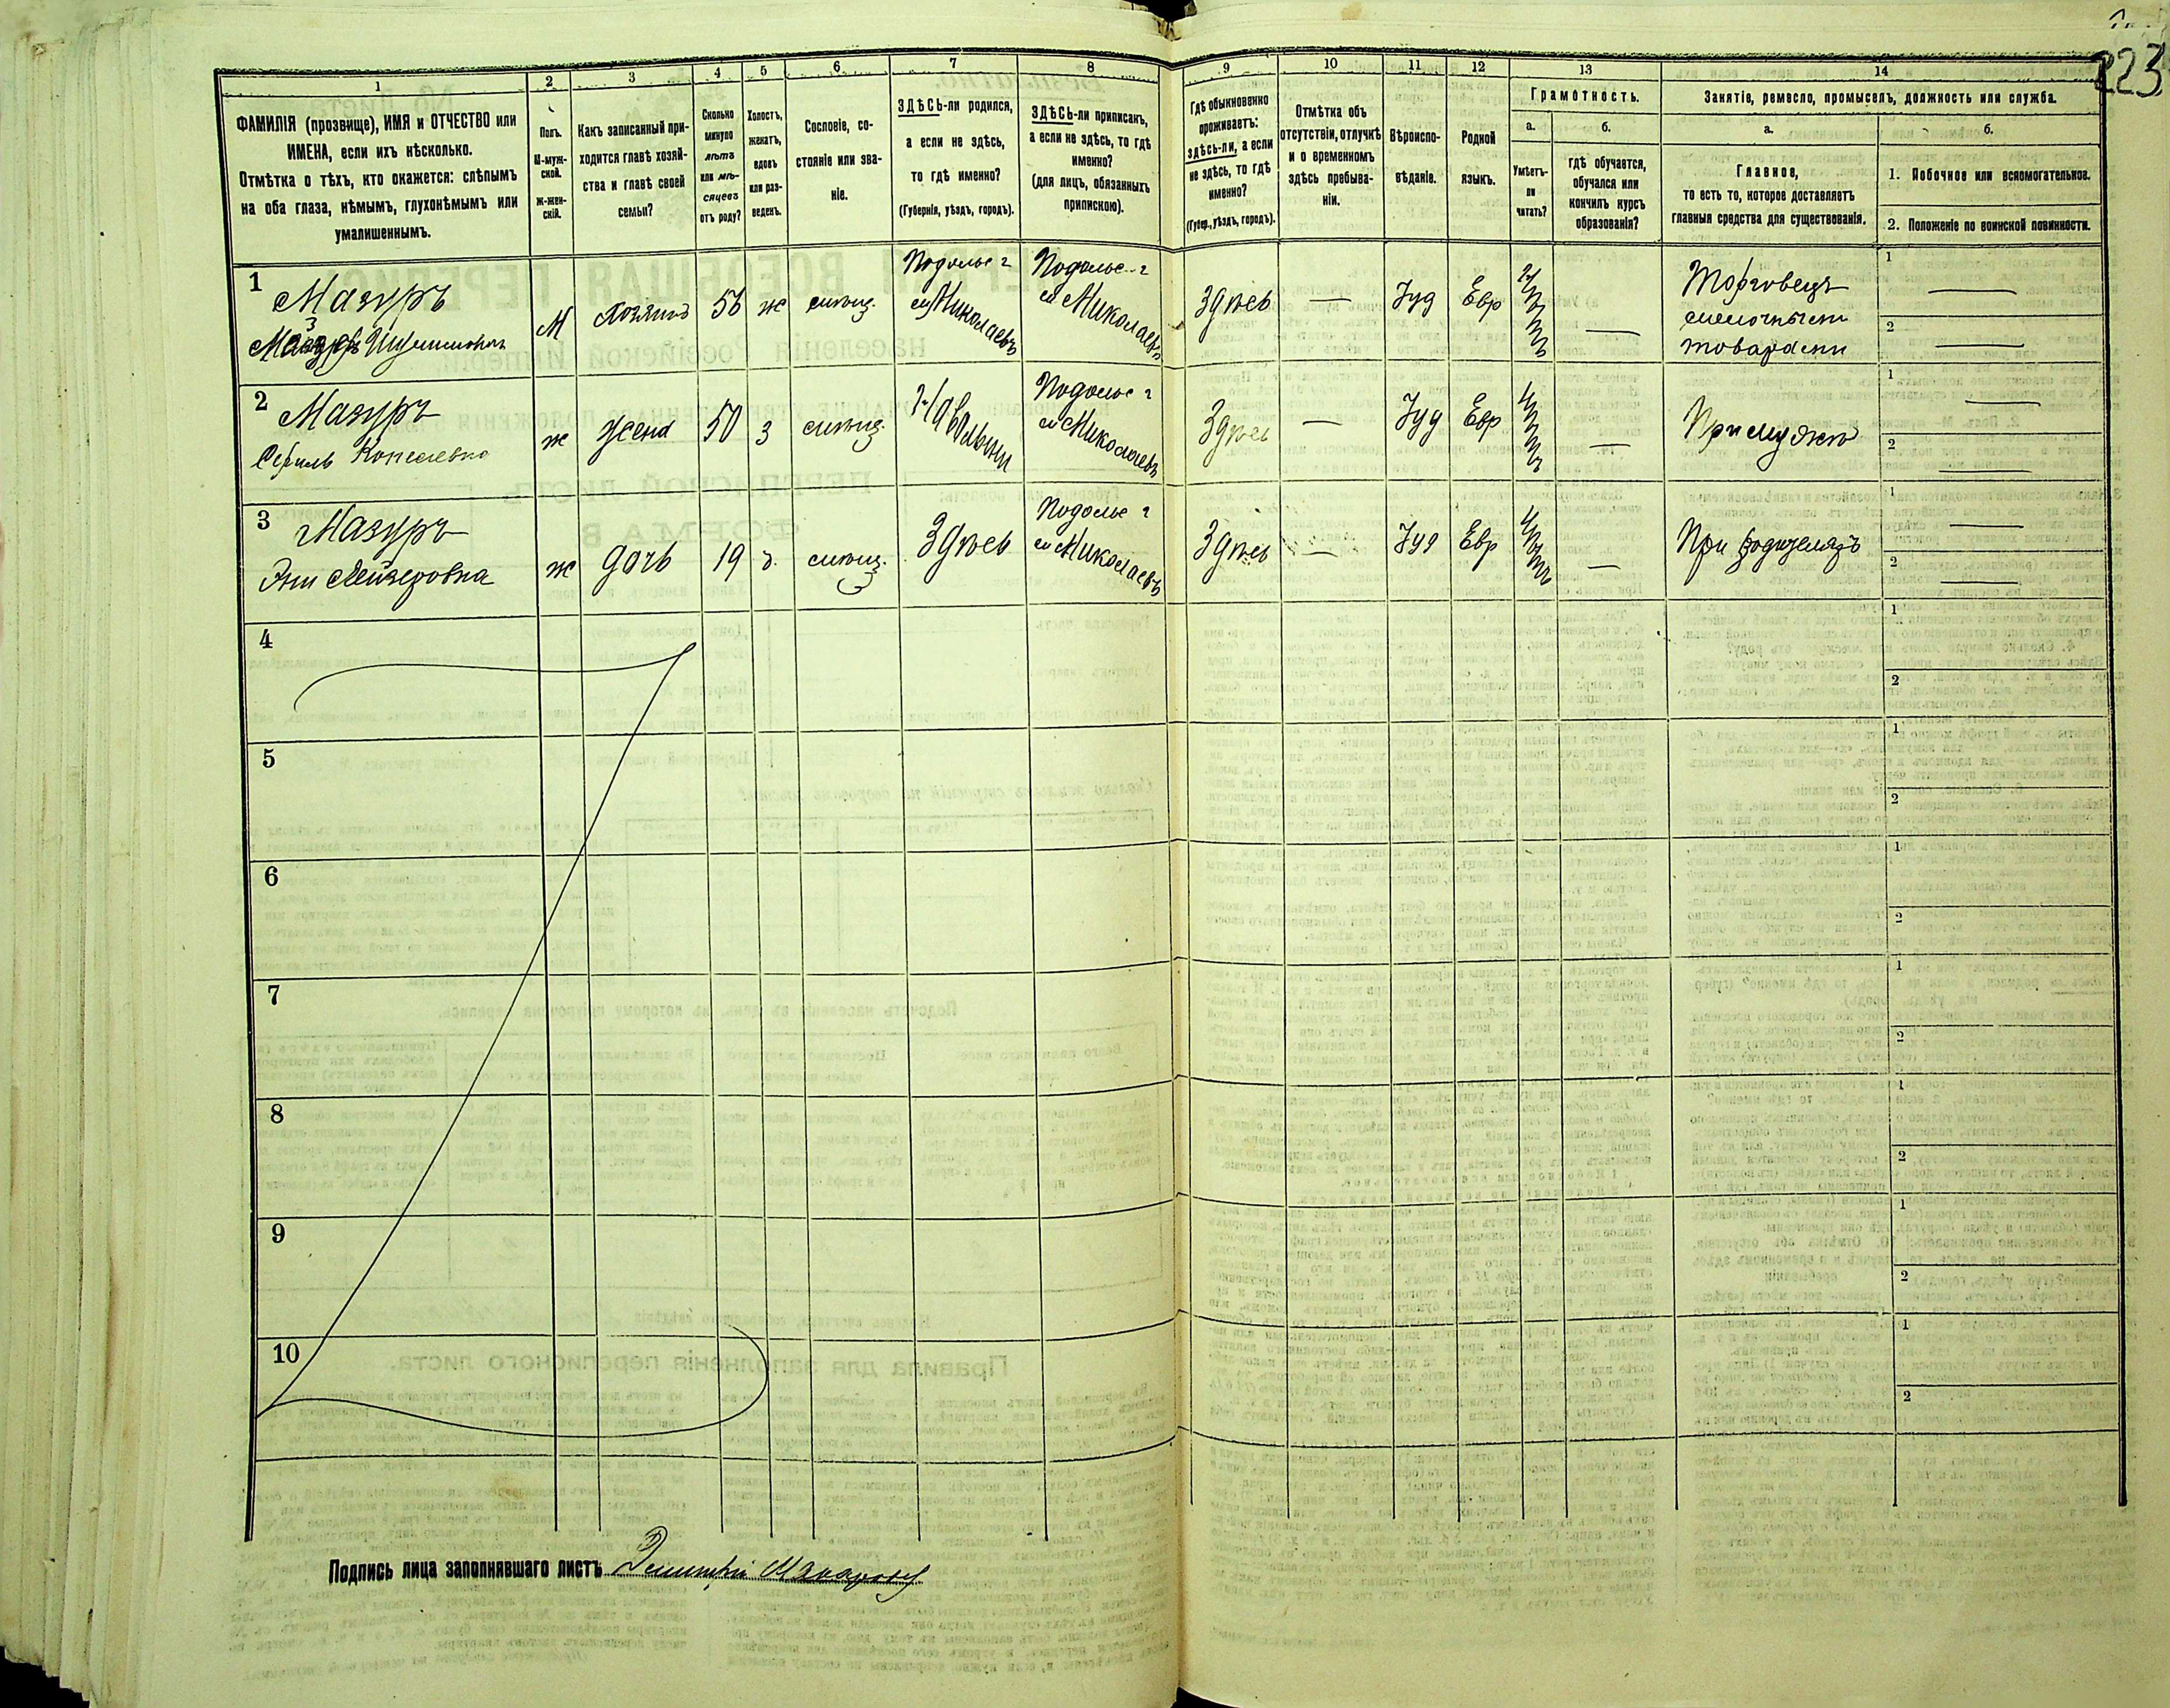 223
1
2
3
4
5
6
7
8
9
10
11
12
13
14
ФАМИЛІЯ (прозвище), ИМЯ и ОТЧЕСТВО или
ИМЕНА, если ихъ нѣсколько.
Отмѣтка о тѣхъ, кто окажется: слѣпымъ
на оба глаза, нѣмымъ, глухонѣмымъ или
умалишеннымъ.
Полъ.
М-муж-
ской.
Ж-жен-
скій.
Какъ записанный при-
ходится главѣ хозяй-
ства и главѣ своей
семьи?
Сколько
минуло
лѣтъ
или мѣ-
сяцевъ
отъ роду?
Холостъ,
женатъ,
вдовъ
или раз-
веденъ.
Сословіе, со-
стояніе или зва-
ніе.
ЗДѢСЬ-ли родился,
а если не здѣсь,
то гдѣ именно?
(Губернія, уѣздъ, городъ).
ЗДѢСЬ-ли приписанъ,
а если не здѣсь, то гдѣ
именно?
(для лицъ, обязанныхъ
припискою).
Гдѣ обыкновенно
проживаетъ:
здѣсь-ли, а если
не здѣсь, то гдѣ
именно?
(Губер., уѣздъ, городъ).
Отмѣтка объ
отсутствіи, отлучкѣ
и о временномъ
здѣсь пребыва-
ніи.
Вѣроиспо-
вѣданіе.
Родной
языкъ.
Грамотность.
а.
б.
Умѣетъ-
ли
читать?
гдѣ обучается,
обучался или
кончилъ курсъ
образованія?
Занятіе, ремесло, промыселъ, должность или служба.
а.
б.
Главное,
то есть то, которое доставляетъ
главныя средства для существованія.
1. Побочное или вспомогательное.
2. Положеніе по воинской повинности.
1
Мазуръ
М Хозяинъ 56 ж
Подольс г
Николаевъ
Подольс г
Николаевъ
Здѣсь — Іуд Евр —
Торговецъ
мелочными
товарами
1 —
2 —
2
Мазуръ
ж жена 50 з
Подольс г
Николаевъ
Здѣсь — Іуд Евр —
При мужѣ
1 —
2 —
3
Мазуръ
Лейзеровна
ж дочь 19
Здѣсь
Подольс г
Николаевъ
Здѣсь — Іуд Евр —
При родителяхъ
1 —
2 —
4
1
2
5
1
2
6
1
2
7
1
2
8
1
2
9
1
2
10
1
2
Подпись лица заполнявшаго листъ